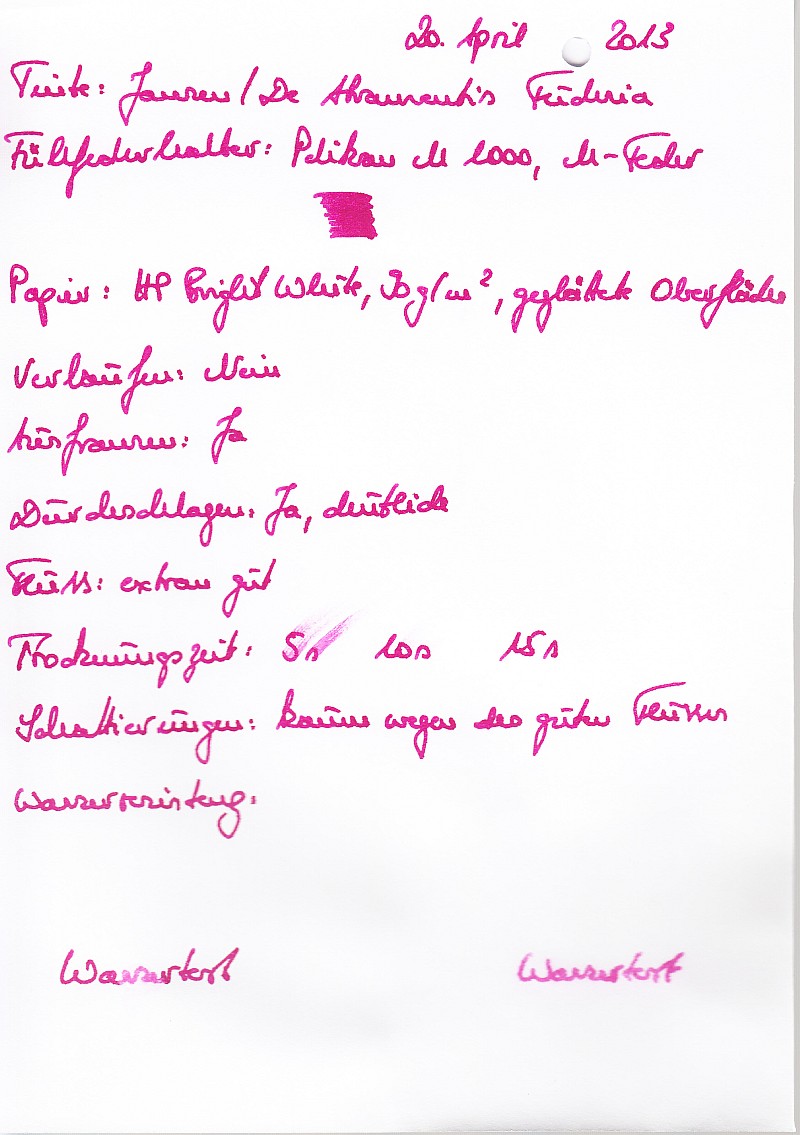 20. April 2013
Tinte: Jansen/De Atramentis Fuchsia
Füllfederhalter: Pelikan M 1000, M-Feder
Papier: HP Bright White, 90 g/m², geglättete Oberfläche
Verlaufen: Nein
Ausfransen: Ja
Durchschlagen: Ja, deutlich
Fluss: extrem gut
Trocknungszeit: 5s 10s 15s
Schattierungen: kaum wegen des guten Flusses
Wasserresistenz:
Wassertest Wassertest